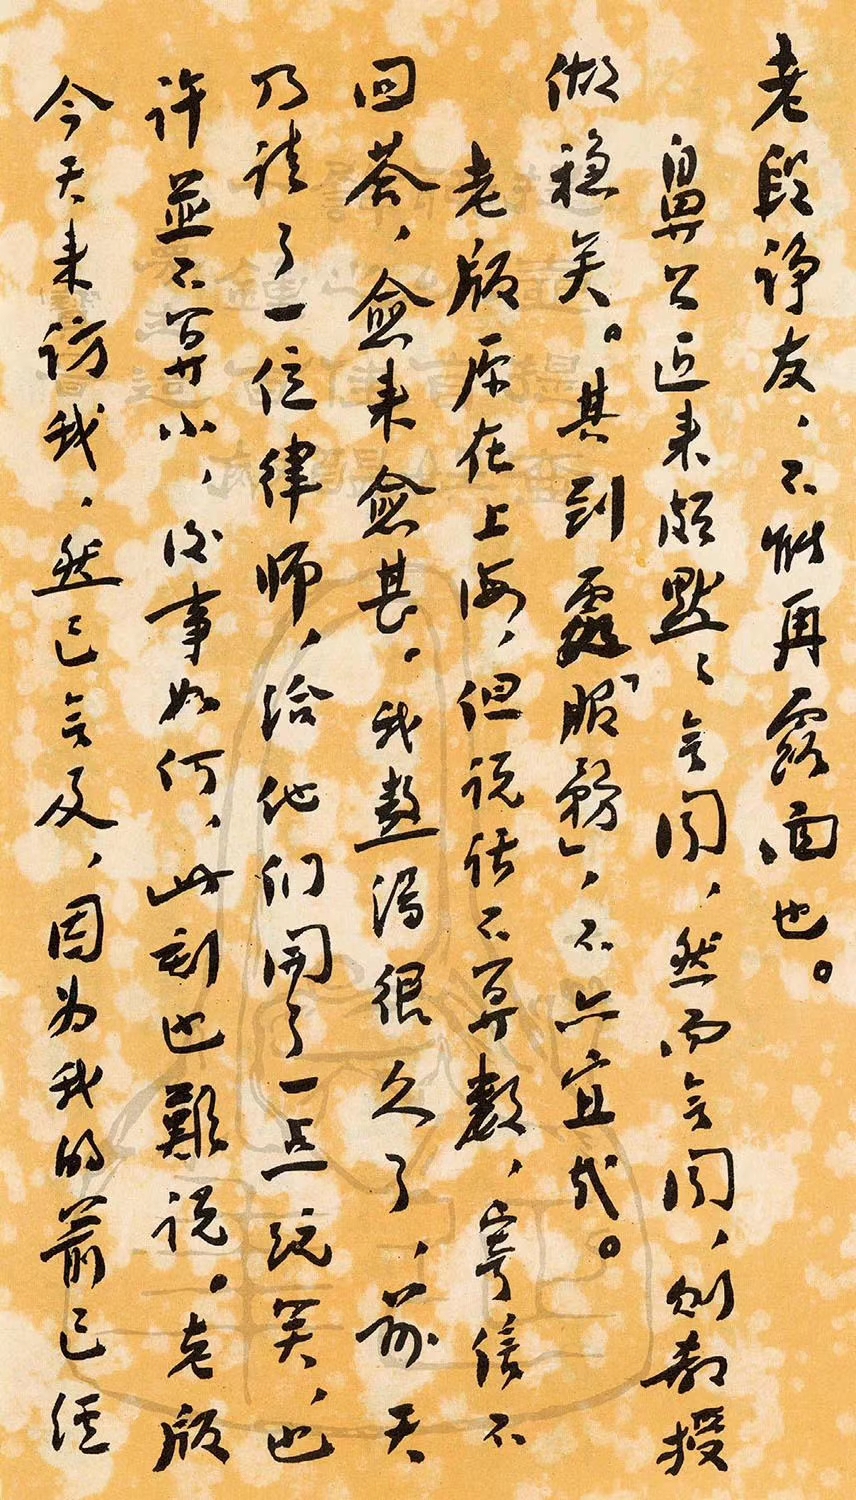 老段诤友、不能再露面也。
鼻公近来颇默〻无闻、然而无闻、则教授
做稳矣。其到處「服务」、不亦宜哉。
老版原在上海、但说话不算數、寄信不
回荅、愈来愈甚。我熬得很久了、前天
乃请了一位律师、给他们开了一点玩笑、也
许並不算小、后事如何、此刻也難说。老版
今天来访我、然已无及、因为我的箭已经